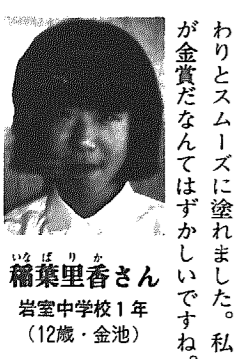 わりとスムーズに塗れました。私
が金賞だなんてはずかしいですね。
いなばりか
稲葉里香さん
岩室中学校1年
(12歳・金池)